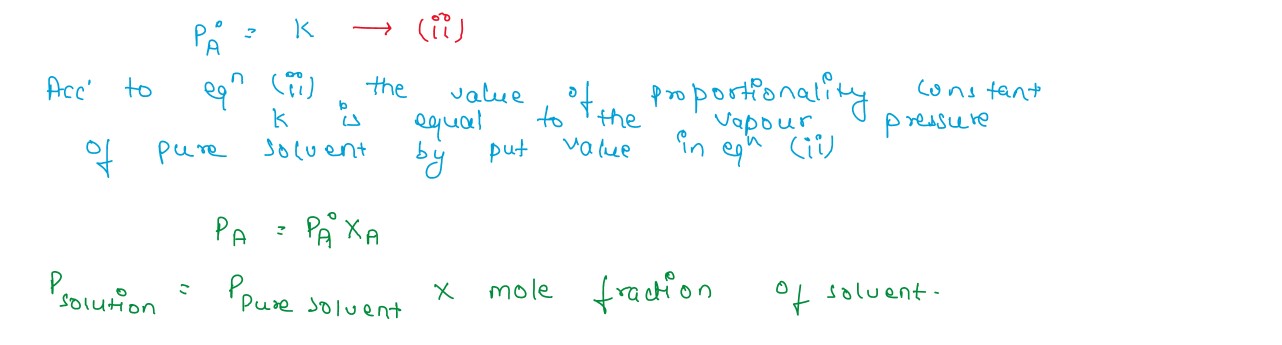 P°A = K → (ii)
Acc' to eqn (ii) the value of proportionality constant
K is equal to the vapour pressure
of pure solvent by put value in eqn (ii)
PA = P°A XA
Psolution = PPure solvent x mole fraction of solvent.